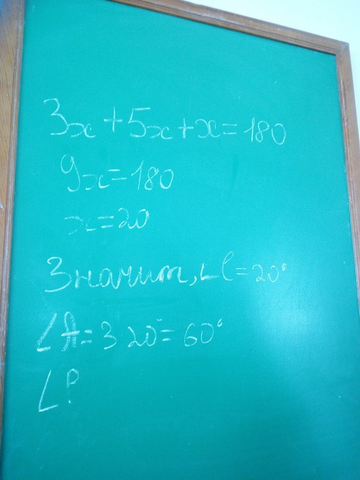 3x+5x+x=180
9x=180
x=20
Значит, ∠C=20°
∠A=3 20=60°
∠B